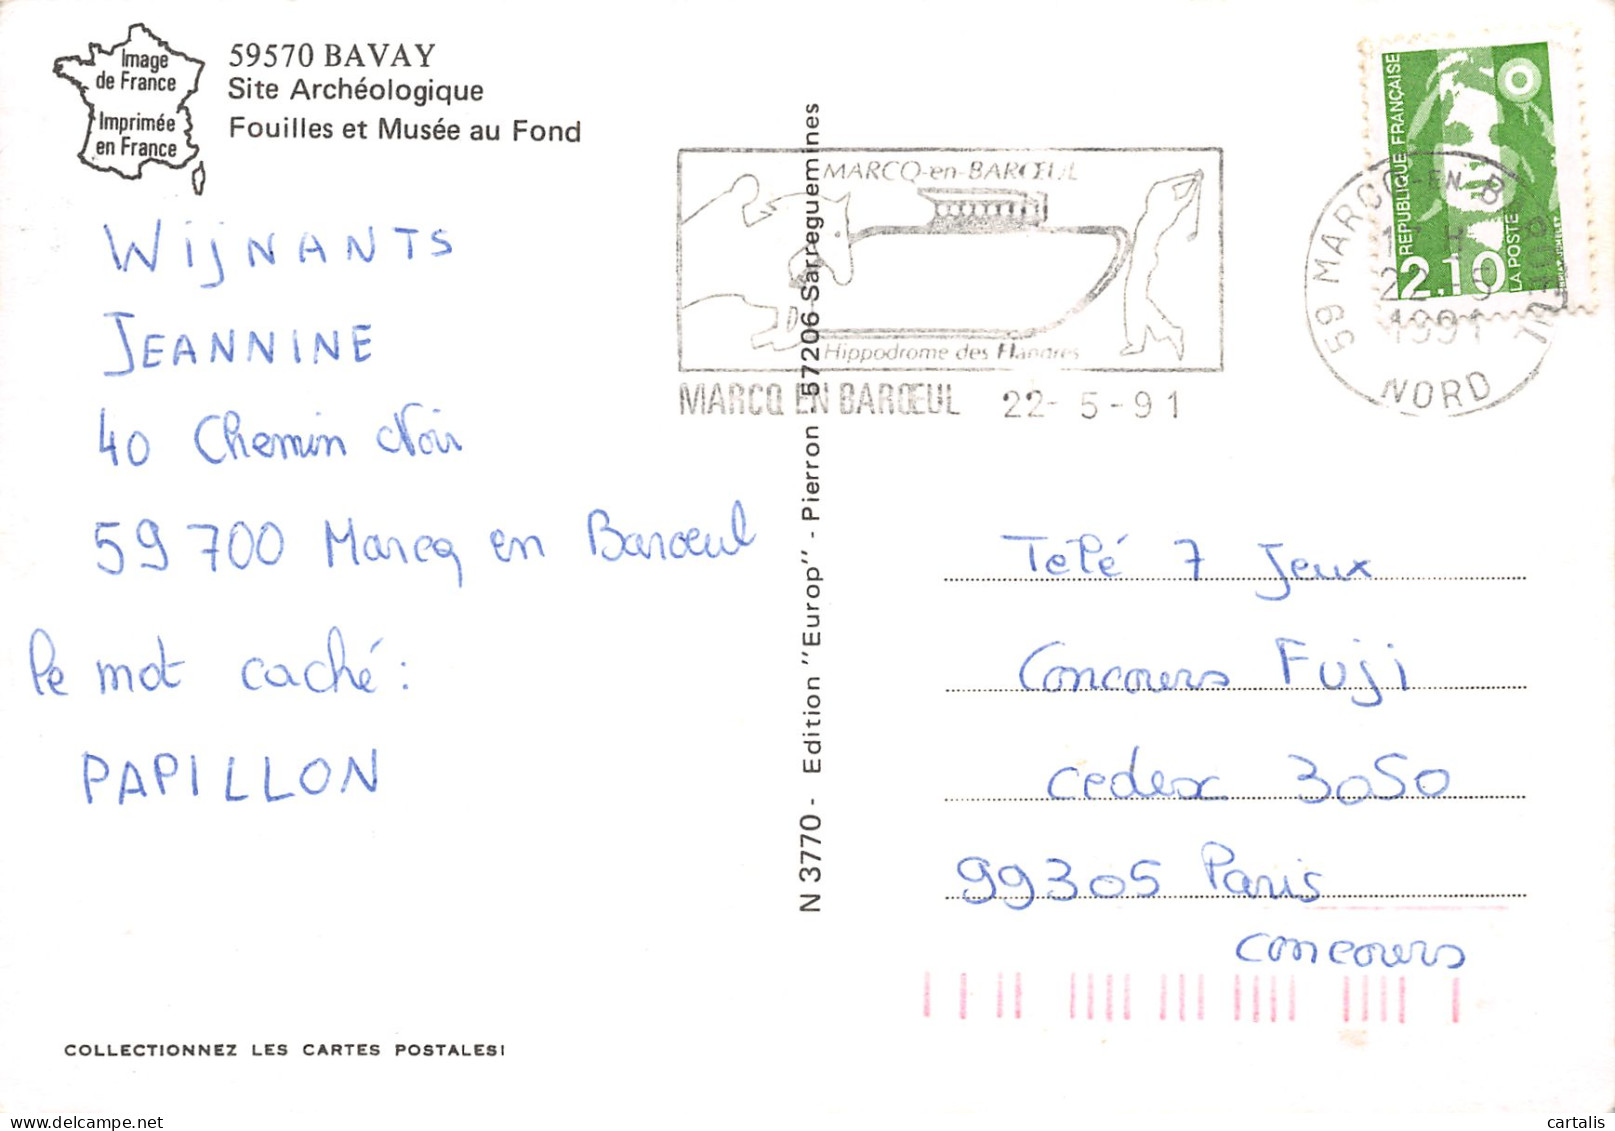 Image
de France
Imprimée
en France
59570 BAVAY
Site Archéologique
Fouilles et Musée au Fond
WijNANTS
JEANNINE
40 Chemin Noir
59700 Marcq en Baroeul
le mot caché :
PAPILLON
COLLECTIONNEZ LES CARTES POSTALES!
N 3770 - Edition "Europ" - Pierron - 57206 Sarreguemines
MARCQ-en-BARŒUL
Hippodrome des Flandres
MARCQ EN BARŒUL 22-5-91
59 MARCQ-EN-BAROEUL
17 H
22-5
1991
NORD
RÉPUBLIQUE FRANÇAISE
2,10
LA POSTE
Télé 7 Jeux
Concours Fuji
cedex 3050
99305 Paris
concours
cartalis